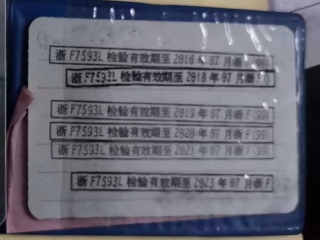 浙F7593L 检验有效期至2016年07月浙F(99)
浙F7593L 检验有效期至2018年07月浙F
浙F7593L 检验有效期至2019年07月浙F(99)
浙F7593L 检验有效期至2020年07月浙F(99)
浙F7593L 检验有效期至2021年07月浙F(99)
浙F7593L 检验有效期至2023年07月浙F